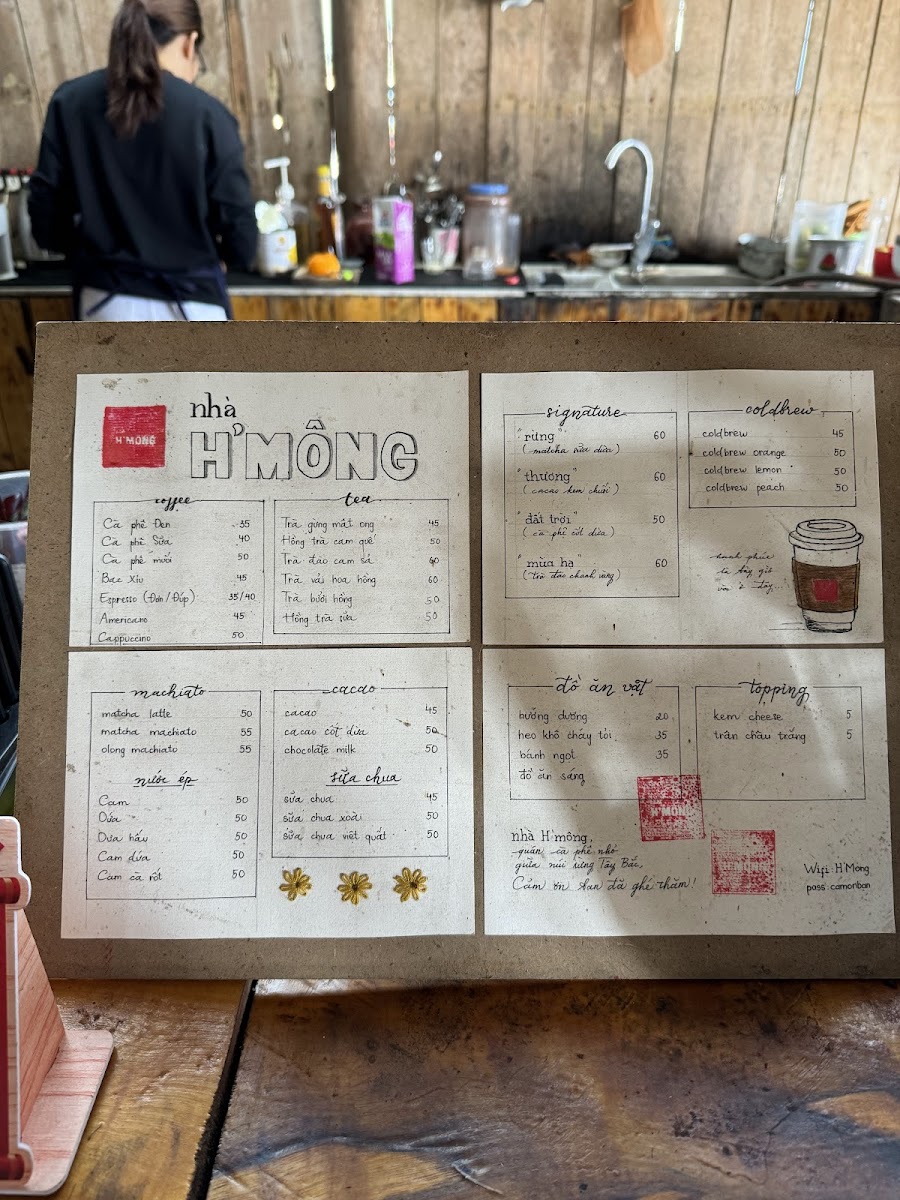 H'MÔNG
nhà
H'MÔNG
coffee
Cà phê Đen 35
Cà phê Sữa 40
Cà phê muối 50
Bạc Xỉu 45
Espresso (Đơn/Đúp) 35/40
Americano 45
Cappuccino 50
tea
Trà gừng mật ong 45
Hồng trà cam quế 50
Trà đào cam sả 60
Trà vải hoa hồng 60
Trà bưởi hồng 50
Hồng trà sữa 50
signature
"rừng" 60
(matcha sữa dừa)
"thương" 60
(cacao kem chuối)
"đất trời" 50
(cà phê cốt dừa)
"mùa hạ" 60
(trà đào chanh vàng)
coldbrew
coldbrew 45
coldbrew orange 50
coldbrew lemon 50
coldbrew peach 50
hạnh phúc
là bây giờ
và ở đây...
machiato
matcha latte 50
matcha machiato 55
olong machiato 55
nước ép
Cam 50
Dứa 50
Dưa hấu 50
Cam dứa 50
Cam cà rốt 50
cacao
cacao 45
cacao cốt dừa 50
chocolate milk 50
sữa chua
sữa chua 45
sữa chua xoài 50
sữa chua việt quất 50
đồ ăn vặt
hướng dương 20
heo khô cháy tỏi 35
bánh ngọt 35
đồ ăn sáng
topping
kem cheese 5
trân châu trắng 5
H'MÔNG
nhà H'mông,
quán cà phê nhỏ
giữa núi rừng Tây Bắc,
Cảm ơn bạn đã ghé thăm!
Wifi: H'Mong
pass: camonban